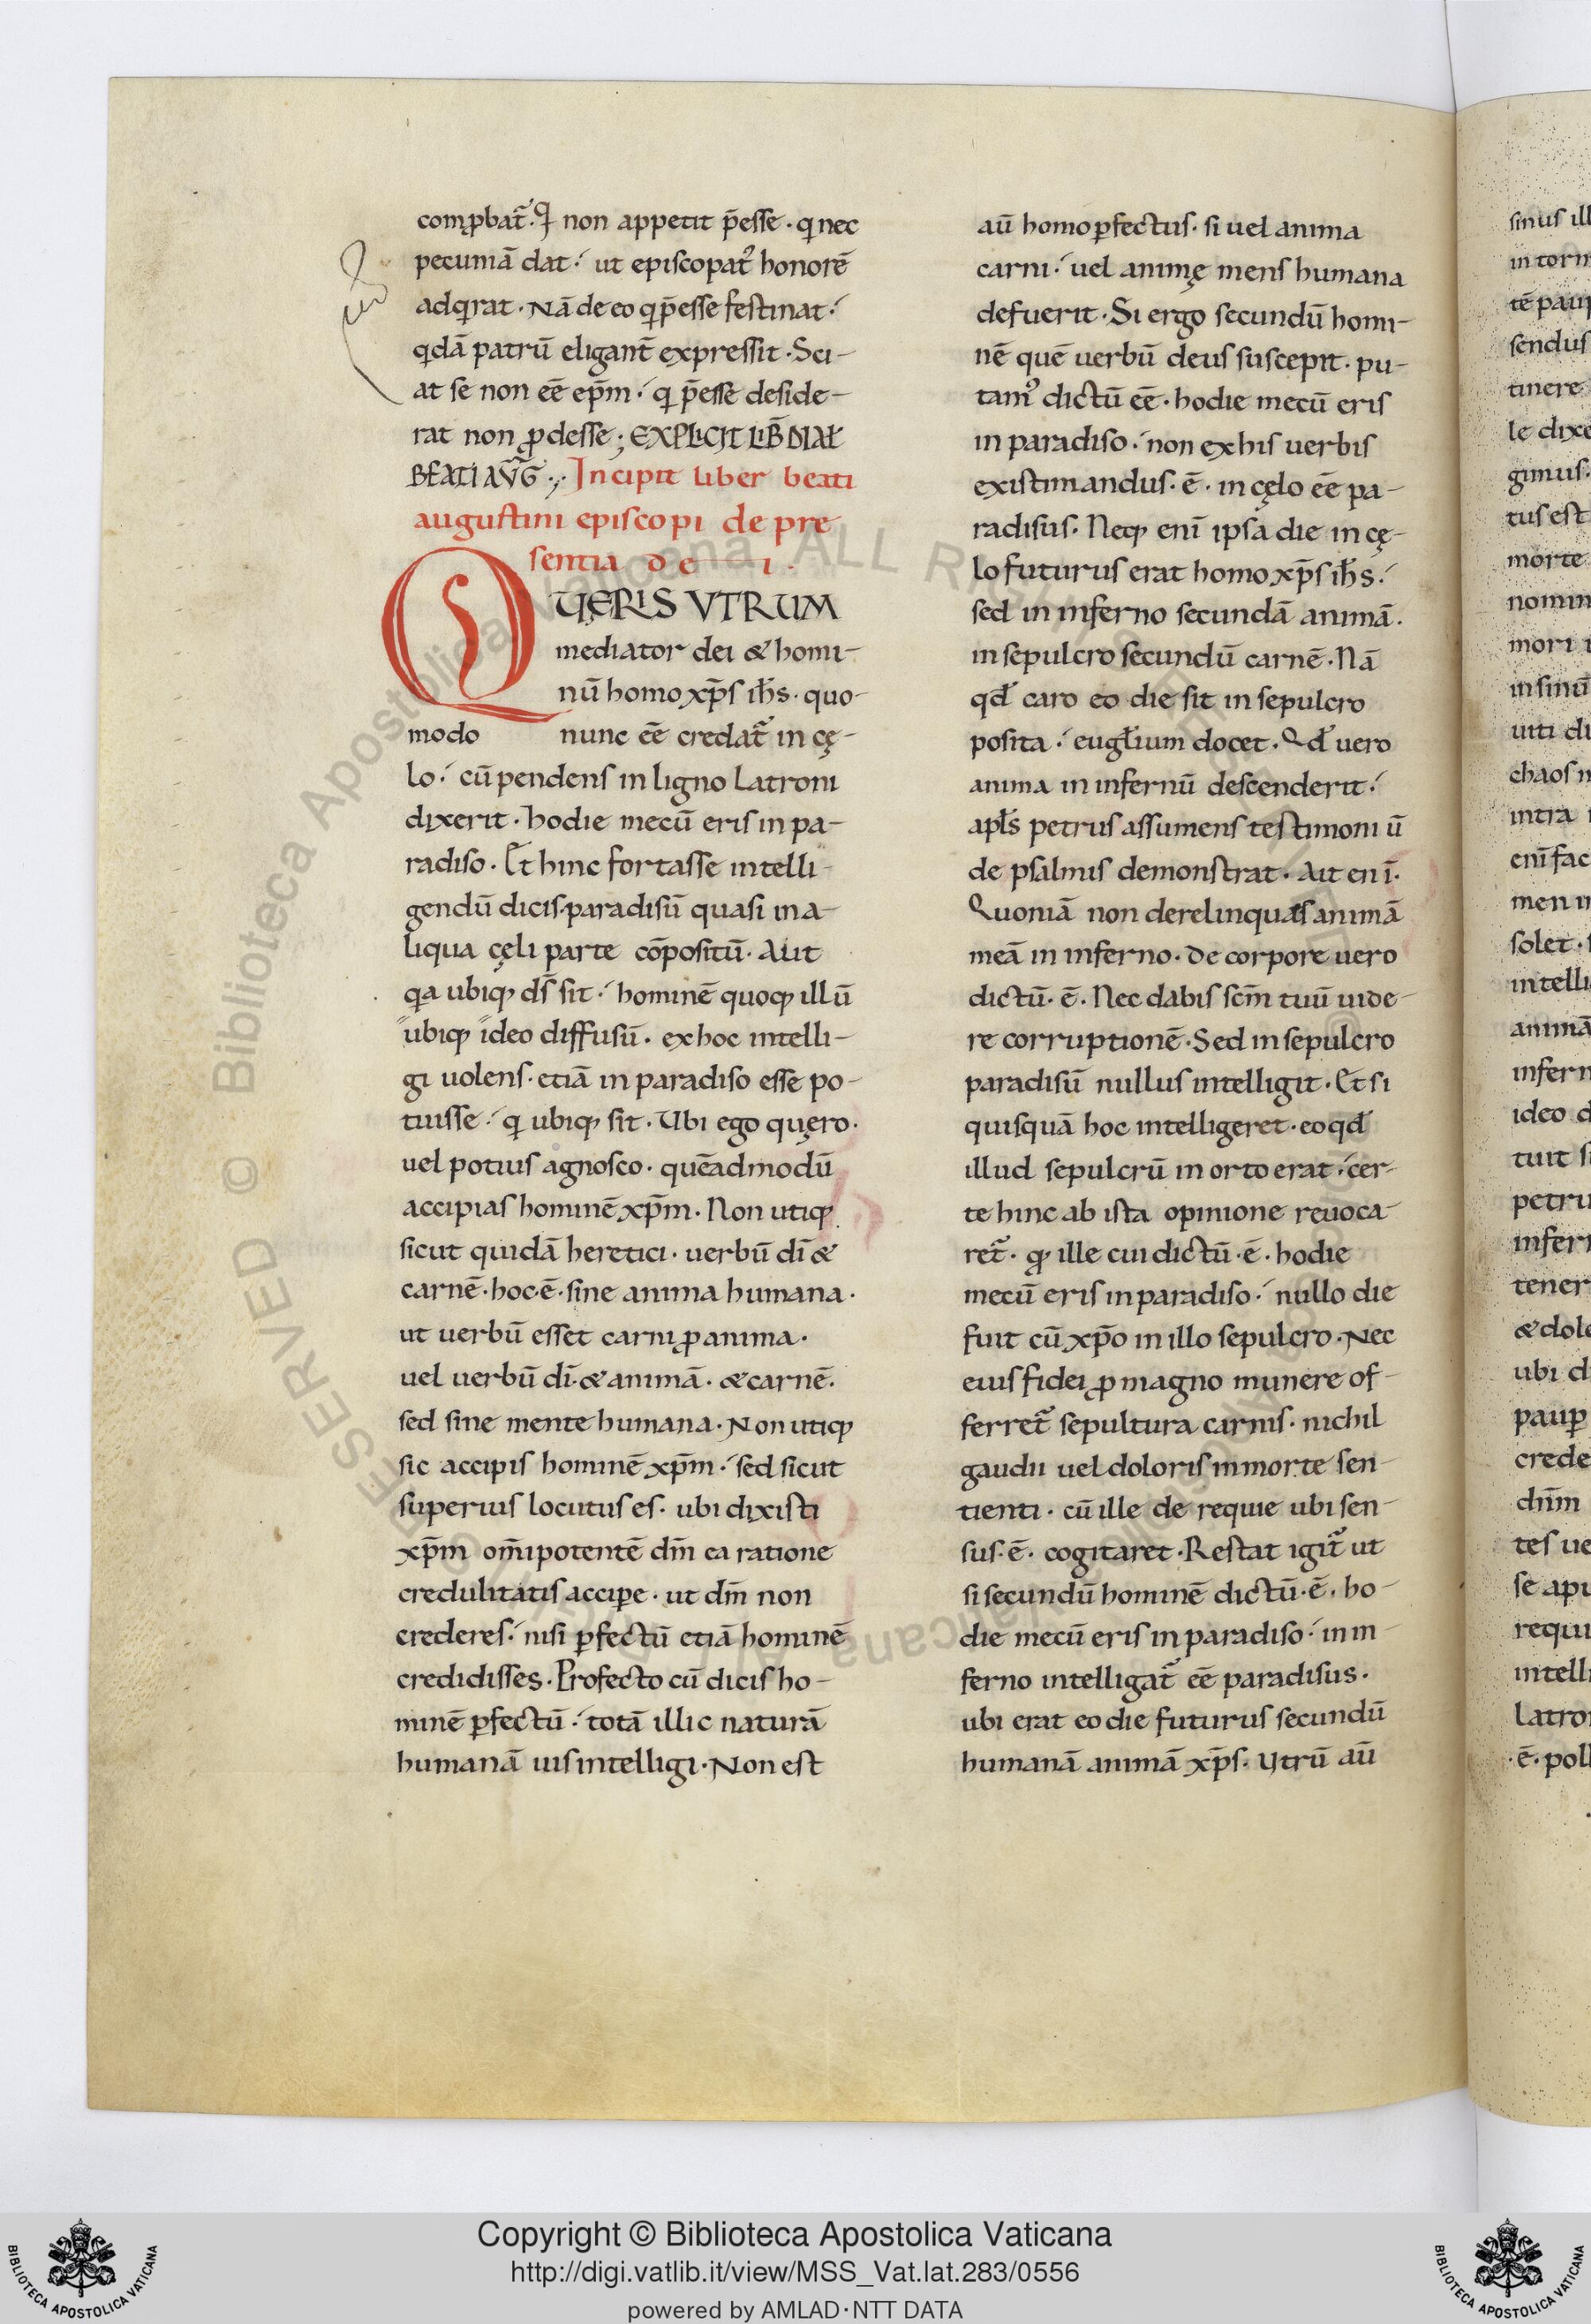 comꝓbat᷑. Qͥ non appetit p̄esse · qͥ nec
pecuniā dat : ut episcopatꝰ honorē
adqͥrat · Nā de eo qͥ p̄esse festinat :
qͥdā patrū eligant̄ expressit · Sci-
at se non eē ep̄m : qͥ p̄esse deside-
rat non ꝓdesse ; EXPLICIT LIB̄ DIAŁ
BEATI AV̄Ḡ ·,· Incipit liber beati
augustini episcopi de pre
sentia de i ·
QUĘRIS VTRUM
mediator dei & homi-
nū homo xp̄s ih̄s · quo-
modo nunc eē credat᷑ in cę-
lo : cū pendens in ligno Latroni
dixerit · hodie mecū eris in pa-
radiso · Et hinc fortasse intelli-
gendū dicis · paradisū quasi in a-
liqua cęli parte cōpositū · Aut
qͥa ubiqꝫ ds̄ sit : hominē quoqꝫ illū
ubiqꝫ ideo diffusū · ex hoc intelli-
gi uolens · etiā in paradiso esse po-
tuisse : qͥ ubiqꝫ sit · Ubi ego quęro ·
uel potius agnosco · quēadmodū
accipias hominē xp̄m · Non utiqꝫ
sicut quidā heretici · uerbū dī &
carnē · hoc · ē · sine anima humana ·
ut uerbū esset carni ꝓ anima ·
uel uerbū dī · & animā · & carnē ·
sed sine mente humana · Non utiqꝫ
sic accipis hominē xp̄m : sed sicut
superius locutus es · ubi dixisti
xp̄m om̄ipotentē dm̄ ea ratione
credulitatis accipe · ut dm̄ non
crederes : nisi ꝑfectū etiā hominē
credidisses · Profecto cū dicis ho-
minē ꝑfectū : totā illic naturā
humanā uis intelligi · Non est
aū homo ꝑfectus · si uel anima
carni : uel animę mens humana
defuerit · Si ergo secundū homi-
nē quē uerbū deus suscepit · pu-
tamꝰ dictū eē · hodie mecū eris
in paradiso : non ex his uerbis
existimandus · ē · in cęlo eē pa-
radisus · Neqꝫ enī ipsa die in cę-
lo futurus erat homo xp̄s ih̄s :
sed in inferno secundā animā ·
in sepulcro secundū carnē · Nā
qđ caro eo die sit in sepulcro
posita : eugłium docet · Qđ uero
anima in infernū descenderit :
apłs petrus assumens testimoniū
de psalmis demonstrat · Ait enī ·
Quoniā non derelinquas animā
meā in inferno · De corpore uero
dictū · ē · Nec dabis scm̄ tuū uide-
re corruptionē · Sed in sepulcro
paradisū nullus intelligit · Et si
quisquā hoc intelligeret · eo qđ
illud sepulcrū in orto erat : cer-
te hinc ab ista opinione reuoca-
ret᷑ · qꝫ ille cui dictū · ē · hodie
mecū eris in paradiso : nullo die
fuit cū xp̄o in illo sepulcro · Nec
eius fidei ꝓ magno munere of-
ferret᷑ sepultura carnis · nichil
gaudii uel doloris in morte sen-
tienti · cū ille de requie ubi sen-
sus · ē · cogitaret · Restat igit᷑ ut
si secundū hominē dictū · ē · ho-
die mecū eris in paradiso : in in-
ferno intelligat᷑ eē paradisus ·
ubi erat eo die futurus secundū
humanā animā xp̄s · Utrū aū
sinus ill
in torm
tē paup
sendus
tinere
le dixe
gimus ·
tus est
morte
nomin
mori i
in sinū
uiti di
chaos m
intra i
enī fac
men in
solet · s
intelli
animā
infern
ideo d
tuit si
petru
infern
tener
& dolo
ubi d
pauꝑ
crede
dn̄m
tes ue
se apu
requi
intelli
Latron
· ē · poll
© Biblioteca Apostolica Vaticana ALL RIGHTS RESERVED
Copyright © Biblioteca Apostolica Vaticana
http://digi.vatlib.it/view/MSS_Vat.lat.283/0556
powered by AMLAD·NTT DATA
BIBLIOTECA APOSTOLICA VATICANA
BIBLIOTECA APOSTOLICA VATICANA